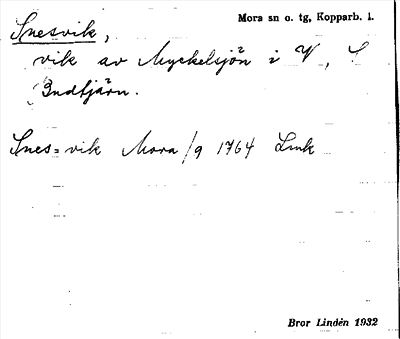 Snesvik,
Mora sn o. tg, Kopparb. l.
vik av Myckelsjön i V, S
Bndtjärn.
Snes=vik Mora/9 1764 Lmk
Bror Lindén 1932